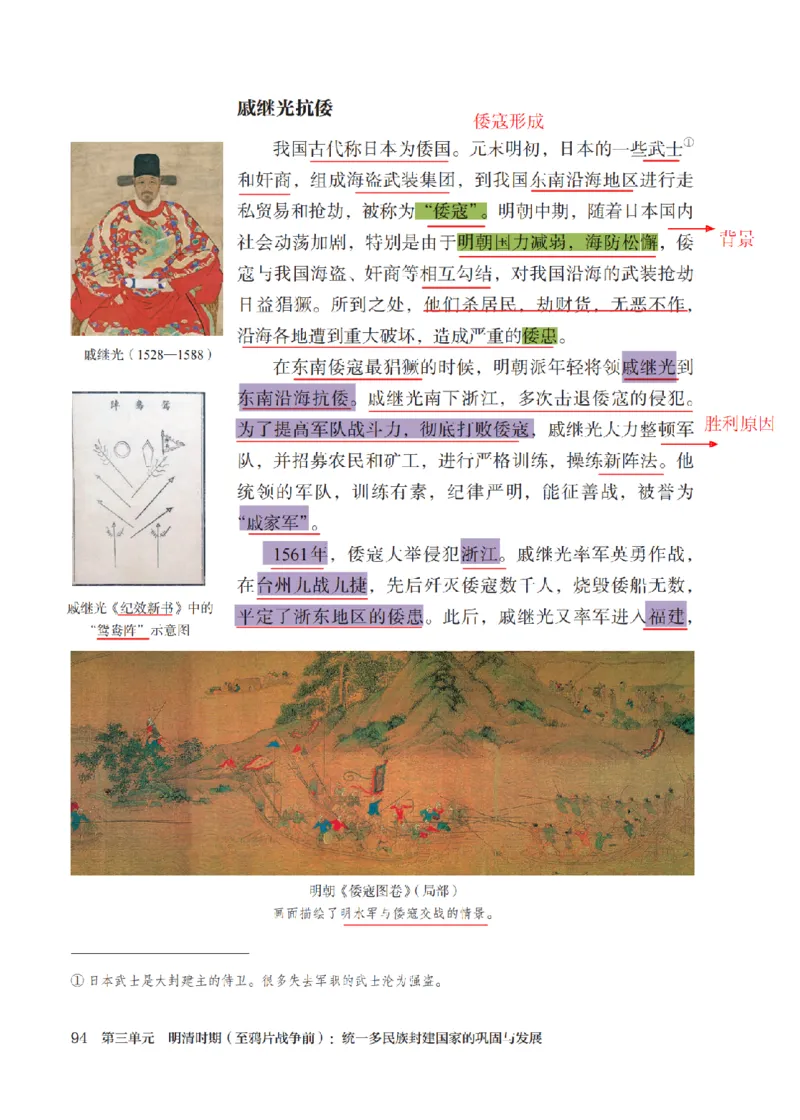 戚继光抗倭
倭寇形成
我国古代称日本为倭国。元末明初，日本的一些武士①
和奸商，组成海盗武装集团，到我国东南沿海地区进行走
私贸易和抢劫，被称为“倭寇”。明朝中期，随着日本国内
社会动荡加剧，特别是由于明朝国力减弱，海防松懈，倭
背景
寇与我国海盗、奸商等相互勾结，对我国沿海的武装抢劫
日益猖獗。所到之处，他们杀居民，劫财货，无恶不作，
沿海各地遭到重大破坏，造成严重的倭患。
戚继光（1528—1588）
在东南倭寇最猖獗的时候，明朝派年轻将领戚继光到
东南沿海抗倭。戚继光南下浙江，多次击退倭寇的侵犯。
为了提高军队战斗力，彻底打败倭寇，戚继光大力整顿军
胜利原因
队，并招募农民和矿工，进行严格训练，操练新阵法。他
统领的军队，训练有素，纪律严明，能征善战，被誉为
“戚家军”。
1561年，倭寇大举侵犯浙江。戚继光率军英勇作战，
在台州九战九捷，先后歼灭倭寇数千人，烧毁倭船无数，
平定了浙东地区的倭患。此后，戚继光又率军进入福建，
陣鴦鴛
戚继光《纪效新书》中的
“鸳鸯阵”示意图
明朝《倭寇图卷》（局部）
画面描绘了明水军与倭寇交战的情景。
① 日本武士是大封建主的侍卫。很多失去军职的武士沦为强盗。
94 第三单元 明清时期（至鸦片战争前）：统一多民族封建国家的巩固与发展